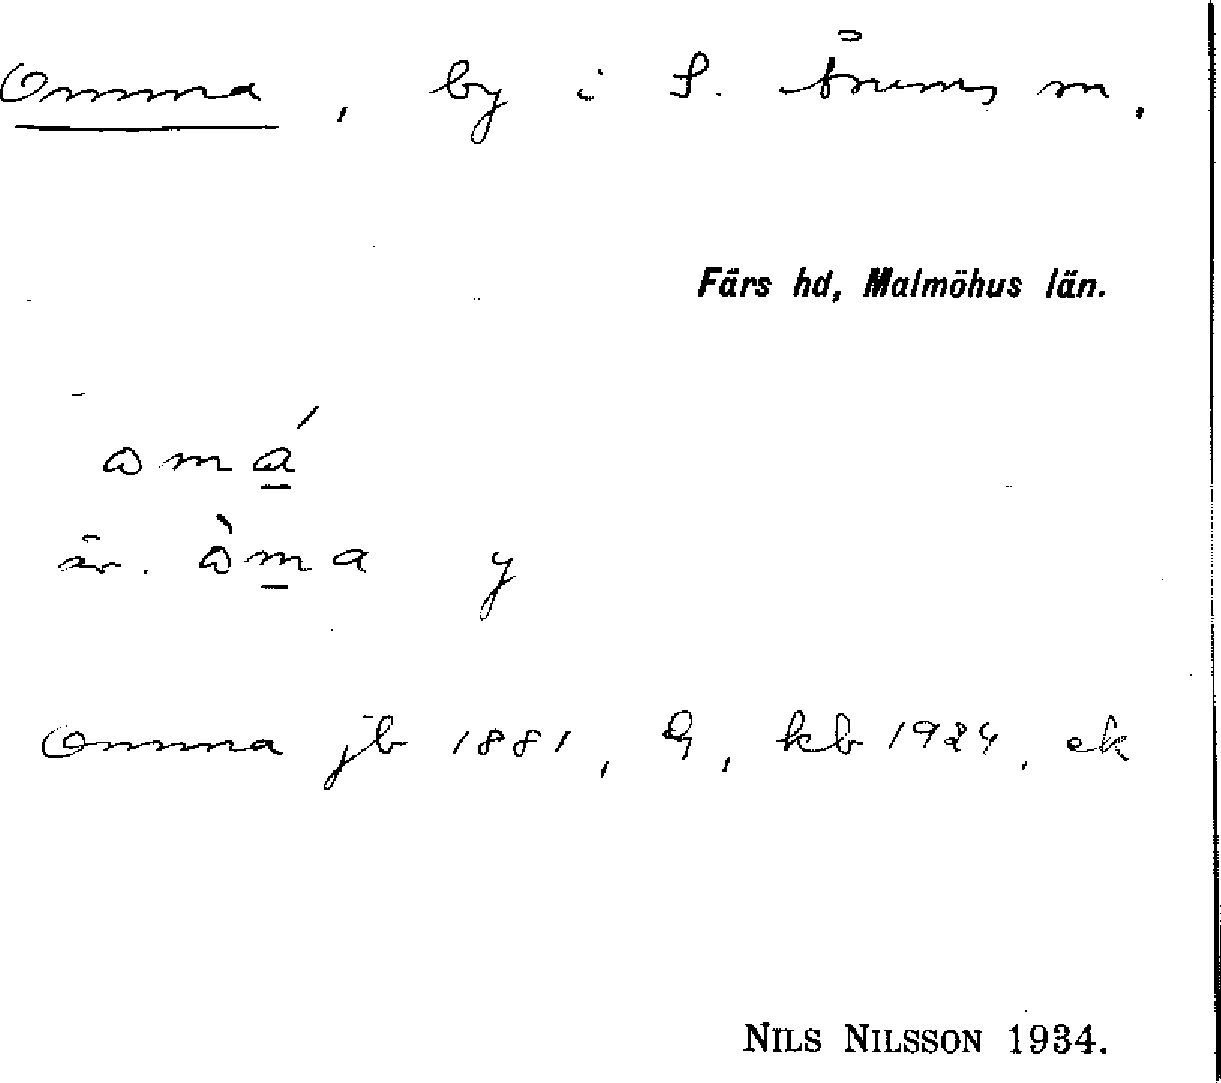 Omma, by i S. Åsums sn.
Färs hd, Malmöhus län.
ɷmá
äv. ɷ̀ma y
Omma jb 1881, G, kb 1924, ek
NILS NILSSON 1934.